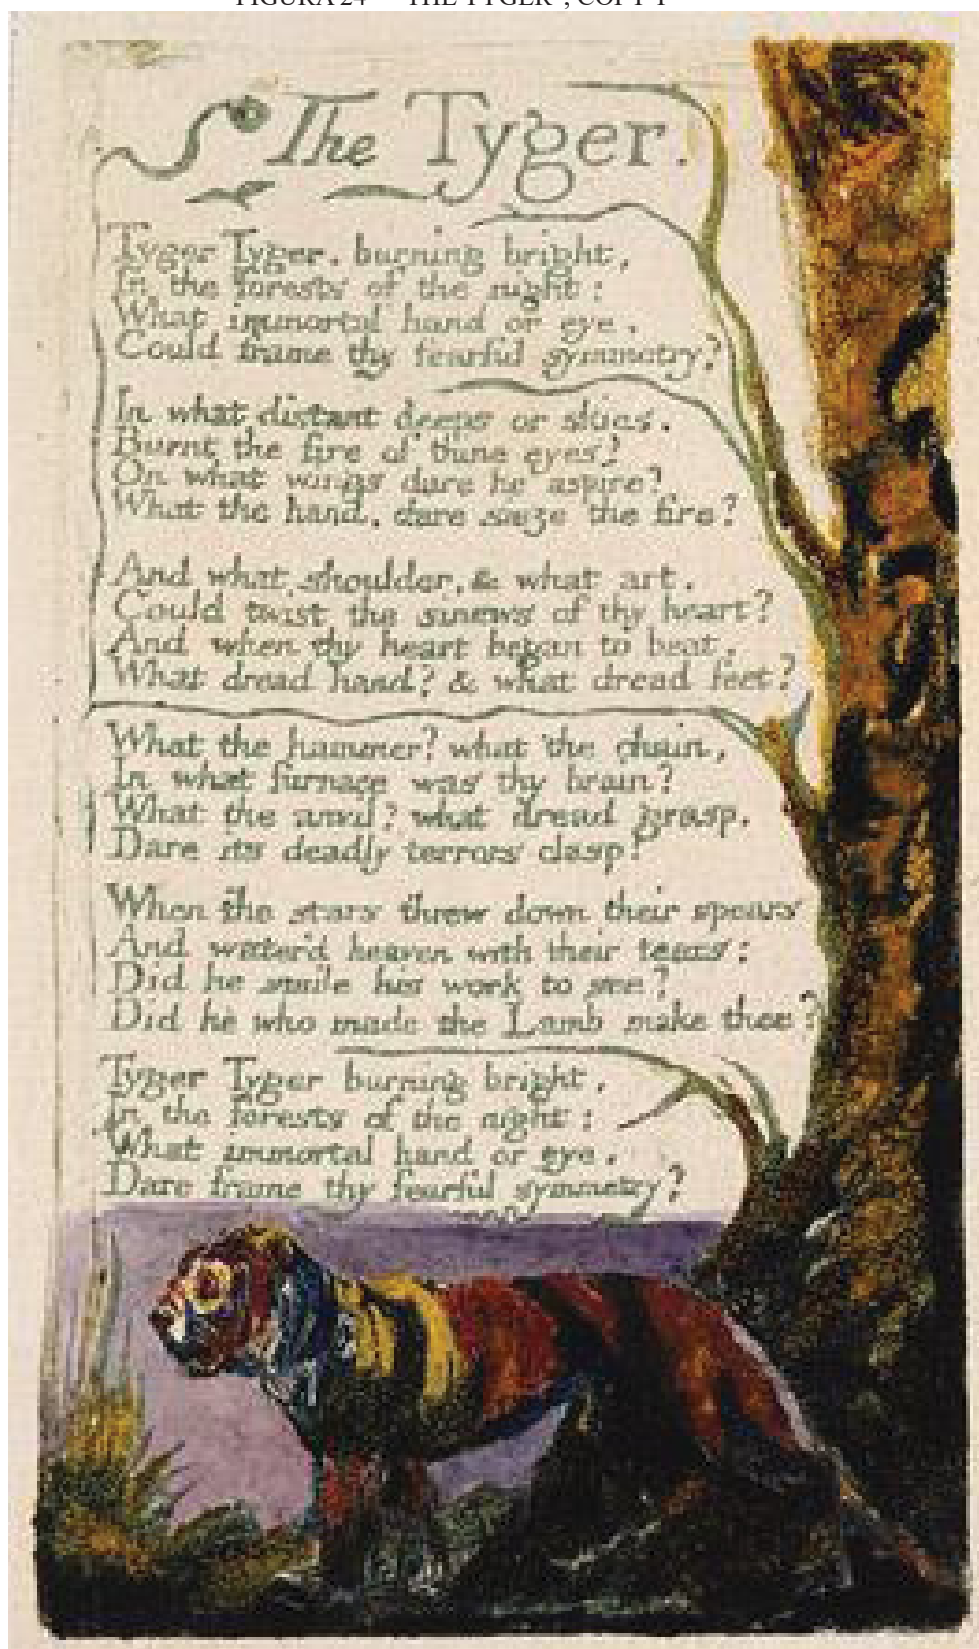 FIGURA 24 "THE TYGER", COPY
The Tyger.
Tyger Tyger. burning bright,
In the forests of the night:
What immortal hand or eye.
Could frame thy fearful symmetry?
In what distant deeps or skies.
Burnt the fire of thine eyes?
On what wings dare he aspire?
What the hand, dare sieze the fire?
And what shoulder, & what art.
Could twist the sinews of thy heart?
And when thy heart began to beat,
What dread hand? & what dread feet?
What the hammer? what the chain,
In what furnace was thy brain?
What the anvil? what dread grasp.
Dare its deadly terrors clasp?
When the stars threw down their spears
And water'd heaven with their tears:
Did he smile his work to see?
Did he who made the Lamb make thee?
Tyger Tyger burning bright,
In the forests of the night:
What immortal hand or eye.
Dare frame thy fearful symmetry?